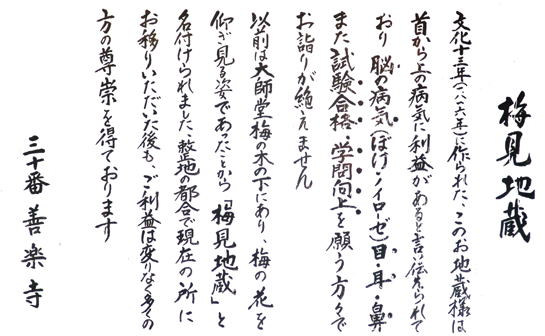 梅見地蔵
文化十三年(一八一六年)に作られた、このお地蔵様は
首から上の病気に利益があると言い伝えられて
おり 脳の病気(ぼけ・ノイローゼ)目・耳・鼻
また試験合格・学問向上を願う方々で
お詣りが絶えません
以前は大師堂梅の木の下にあり、梅の花を
仰ぎ見る姿であったことから「梅見地蔵」と
名付けられました、整地の都合で現在の所に
お移りいただいた後も、ご利益は変りなく多くの
方の尊崇を得ております
三十番 善楽寺